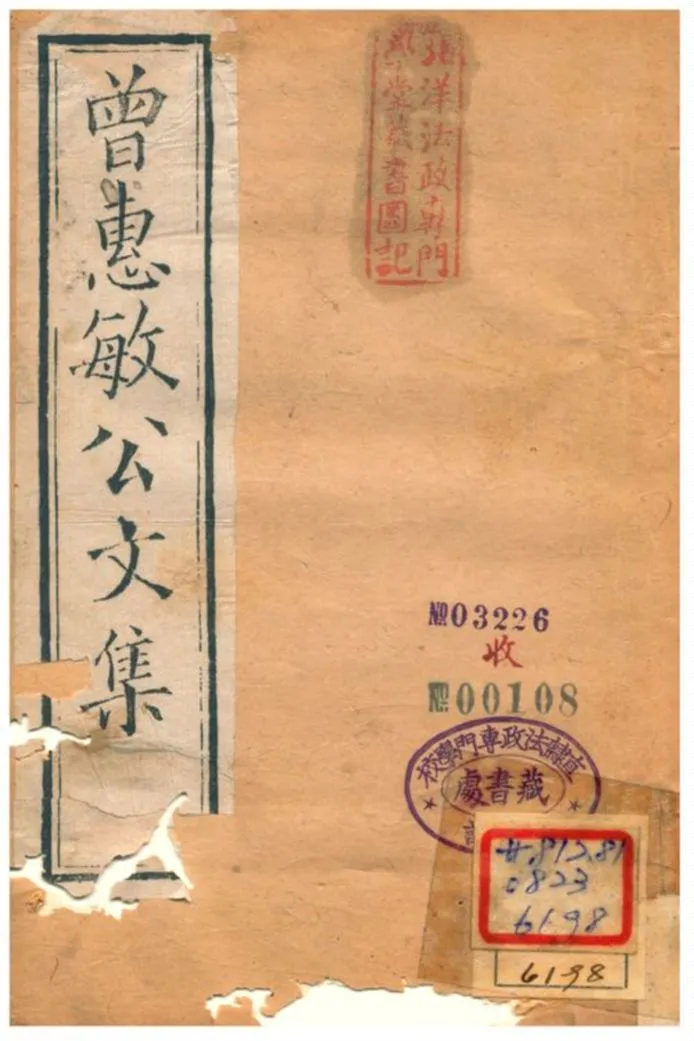 曾惠敏公文集
洋法政專門
堂藏書圖記
№03226
收
№00108
直隸法政專門學校
藏書處
#.812.81
0823
6198
6198